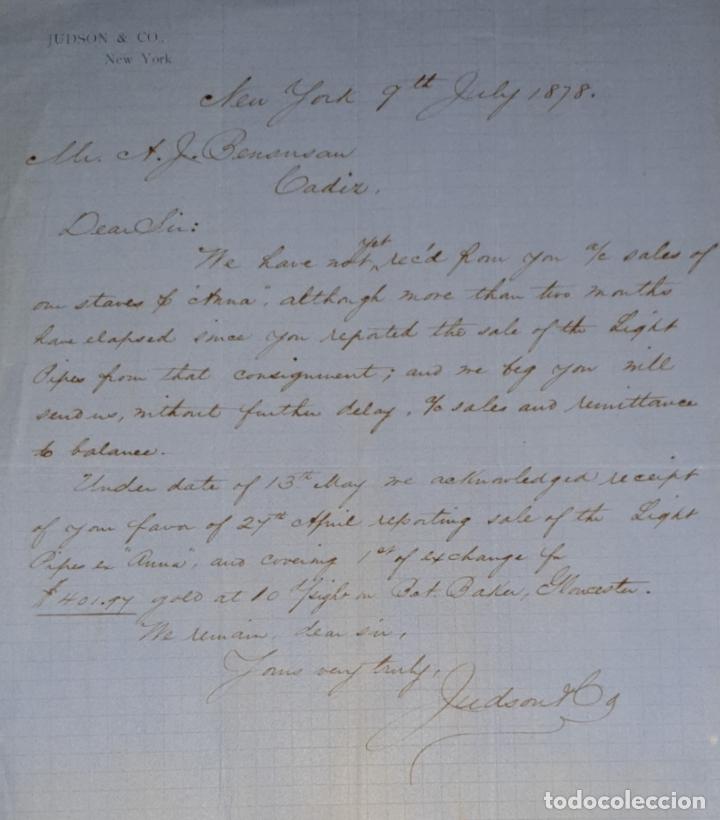 JUDSON & CO.
New York
New York 9th July 1878.
Mr. A. J. Bensusan
Cadiz.
Dear Sir:
We have not yet rec'd from you a/c sales of
our staves p "Anna", although more than two months
have elapsed since you reported the sale of the Light
Pipes from that consignment; and we beg you will
send us, without further delay, a/c sales and remittance
to balance.
Under date of 13th May we acknowledged receipt
of your favor of 27th April reporting sale of the Light
Pipes ex "Anna", and covering 1st of exchange for
$401.97 gold at 10 d/sight on Baker, Gloucester.
We remain, dear sir,
Yours very truly,
Judson & Co
todocoleccion